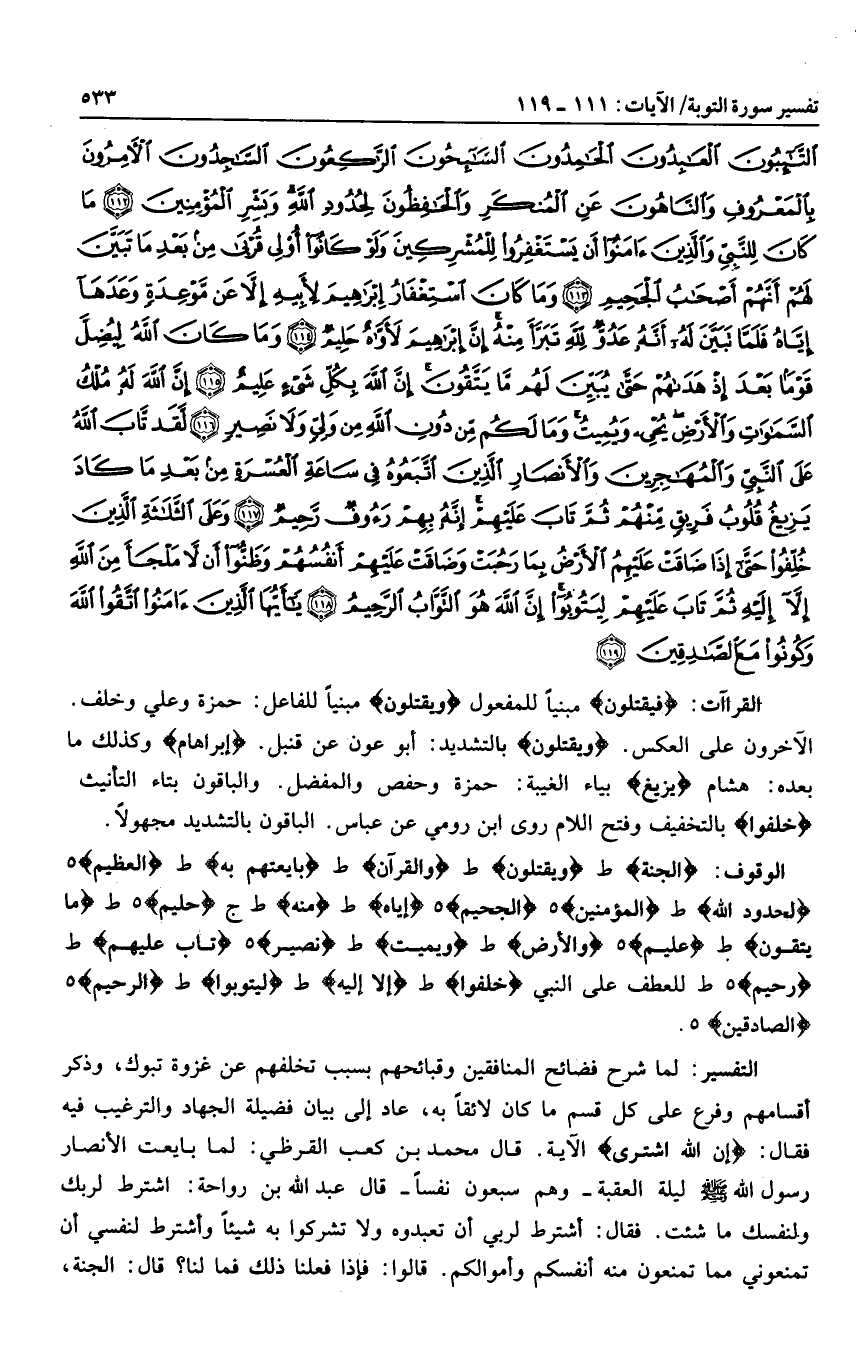 تفسير سورة التوبة/ الآيات: ١١١ ـ ١١٩ ٥٣٣
ٱلتَّٰٓئِبُونَ ٱلْعَٰبِدُونَ ٱلْحَٰمِدُونَ ٱلسَّٰٓئِحُونَ ٱلرَّٰكِعُونَ ٱلسَّٰجِدُونَ ٱلْءَامِرُونَ
بِٱلْمَعْرُوفِ وَٱلنَّاهُونَ عَنِ ٱلْمُنكَرِ وَٱلْحَٰفِظُونَ لِحُدُودِ ٱللَّهِ ۗ وَبَشِّرِ ٱلْمُؤْمِنِينَ ﴿١١٢﴾ مَا
كَانَ لِلنَّبِىِّ وَٱلَّذِينَ ءَامَنُوٓا۟ أَن يَسْتَغْفِرُوا۟ لِلْمُشْرِكِينَ وَلَوْ كَانُوٓا۟ أُو۟لِى قُرْبَىٰ مِنۢ بَعْدِ مَا تَبَيَّنَ
لَهُمْ أَنَّهُمْ أَصْحَٰبُ ٱلْجَحِيمِ ﴿١١٣﴾ وَمَا كَانَ ٱسْتِغْفَارُ إِبْرَٰهِيمَ لِأَبِيهِ إِلَّا عَن مَّوْعِدَةٍ وَعَدَهَآ
إِيَّاهُ فَلَمَّا تَبَيَّنَ لَهُۥٓ أَنَّهُۥ عَدُوٌّ لِّلَّهِ تَبَرَّأَ مِنْهُ ۚ إِنَّ إِبْرَٰهِيمَ لَأَوَّٰهٌ حَلِيمٌ ﴿١١٤﴾ وَمَا كَانَ ٱللَّهُ لِيُضِلَّ
قَوْمًۢا بَعْدَ إِذْ هَدَىٰهُمْ حَتَّىٰ يُبَيِّنَ لَهُم مَّا يَتَّقُونَ ۚ إِنَّ ٱللَّهَ بِكُلِّ شَىْءٍ عَلِيمٌ ﴿١١٥﴾ إِنَّ ٱللَّهَ لَهُۥ مُلْكُ
ٱلسَّمَٰوَٰتِ وَٱلْأَرْضِ ۖ يُحْىِۦ وَيُمِيتُ ۚ وَمَا لَكُم مِّن دُونِ ٱللَّهِ مِن وَلِىٍّ وَلَا نَصِيرٍ ﴿١١٦﴾ لَّقَد تَّابَ ٱللَّهُ
عَلَى ٱلنَّبِىِّ وَٱلْمُهَٰجِرِينَ وَٱلْأَنصَارِ ٱلَّذِينَ ٱتَّبَعُوهُ فِى سَاعَةِ ٱلْعُسْرَةِ مِنۢ بَعْدِ مَا كَادَ
يَزِيغُ قُلُوبُ فَرِيقٍ مِّنْهُمْ ثُمَّ تَابَ عَلَيْهِمْ ۚ إِنَّهُۥ بِهِمْ رَءُوفٌ رَّحِيمٌ ﴿١١٧﴾ وَعَلَى ٱلثَّلَٰثَةِ ٱلَّذِينَ
خُلِّفُوا۟ حَتَّىٰٓ إِذَا ضَاقَتْ عَلَيْهِمُ ٱلْأَرْضُ بِمَا رَحُبَتْ وَضَاقَتْ عَلَيْهِمْ أَنفُسُهُمْ وَظَنُّوٓا۟ أَن لَّا مَلْجَأَ مِنَ ٱللَّهِ
إِلَّآ إِلَيْهِ ثُمَّ تَابَ عَلَيْهِمْ لِيَتُوبُوٓا۟ ۚ إِنَّ ٱللَّهَ هُوَ ٱلتَّوَّابُ ٱلرَّحِيمُ ﴿١١٨﴾ يَٰٓأَيُّهَا ٱلَّذِينَ ءَامَنُوا۟ ٱتَّقُوا۟ ٱللَّهَ
وَكُونُوا۟ مَعَ ٱلصَّٰدِقِينَ ﴿١١٩﴾
القراآت: ﴿فيقتلون﴾ مبنياً للمفعول ﴿ويقتلون﴾ مبنياً للفاعل: حمزة وعلي وخلف.
الآخرون على العكس. ﴿ويقتلون﴾ بالتشديد: أبو عون عن قنبل. ﴿إبراهام﴾ وكذلك ما
بعده: هشام ﴿يزيغ﴾ بياء الغيبة: حمزة وحفص والمفضل. والباقون بتاء التأنيث
﴿خلفوا﴾ بالتخفيف وفتح اللام روى ابن رومي عن عباس. الباقون بالتشديد مجهولاً.
الوقوف: ﴿الجنة﴾ ط ﴿ويقتلون﴾ ط ﴿والقرآن﴾ ط ﴿بايعتهم به﴾ ط ﴿العظيم﴾٥
﴿لحدود الله﴾ ط ﴿المؤمنين﴾٥ ﴿الجحيم﴾٥ ﴿إياه﴾ ط ﴿منه﴾ ط ج ﴿حليم﴾٥ ط ﴿ما
يتقون﴾ ط ﴿عليم﴾٥ ﴿والأرض﴾ ط ﴿ويميت﴾ ط ﴿نصير﴾٥ ﴿تاب عليهم﴾ ط
﴿رحيم﴾٥ ط للعطف على النبي ﴿خلفوا﴾ ط ﴿إلا إليه﴾ ط ﴿ليتوبوا﴾ ط ﴿الرحيم﴾٥
﴿الصادقين﴾ ٥.
التفسير: لما شرح فضائح المنافقين وقبائحهم بسبب تخلفهم عن غزوة تبوك، وذكر
أقسامهم وفرع على كل قسم ما كان لائقاً به، عاد إلى بيان فضيلة الجهاد والترغيب فيه
فقال: ﴿إن الله اشترى﴾ الآية. قال محمد بن كعب القرظي: لما بايعت الأنصار
رسول الله ﷺ ليلة العقبة ـ وهم سبعون نفساً ـ قال عبد الله بن رواحة: اشترط لربك
ولنفسك ما شئت. فقال: أشترط لربي أن تعبدوه ولا تشركوا به شيئاً وأشترط لنفسي أن
تمنعوني مما تمنعون منه أنفسكم وأموالكم. قالوا: فإذا فعلنا ذلك فما لنا؟ قال: الجنة،